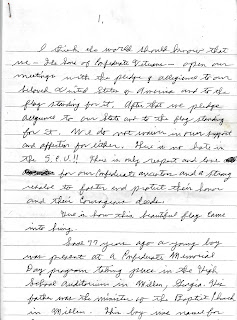 1.
I think the world should know that
we - the Sons of Confederate Veterans - open our
meetings with the pledge of allegiance to our
beloved United States of America and to the
flag standing for it. After that we pledge
allegiance to our State and to the flag standing
for it. We do not waiver in our support
and affection for either. There is no hate in
the S.C.V.!! There is only respect and love
for our Confederate ancestors and a strong
resolve to foster and protect their honor
and their courageous deeds.
Here is how this beautiful flag came
into being.
Some 77 years ago a young boy
was present at a Confederate Memorial
Day program taking place in the High
School Auditorium in Millen, Georgia. His
father was the minister of the Baptist Church
in Millen. This boy was named for